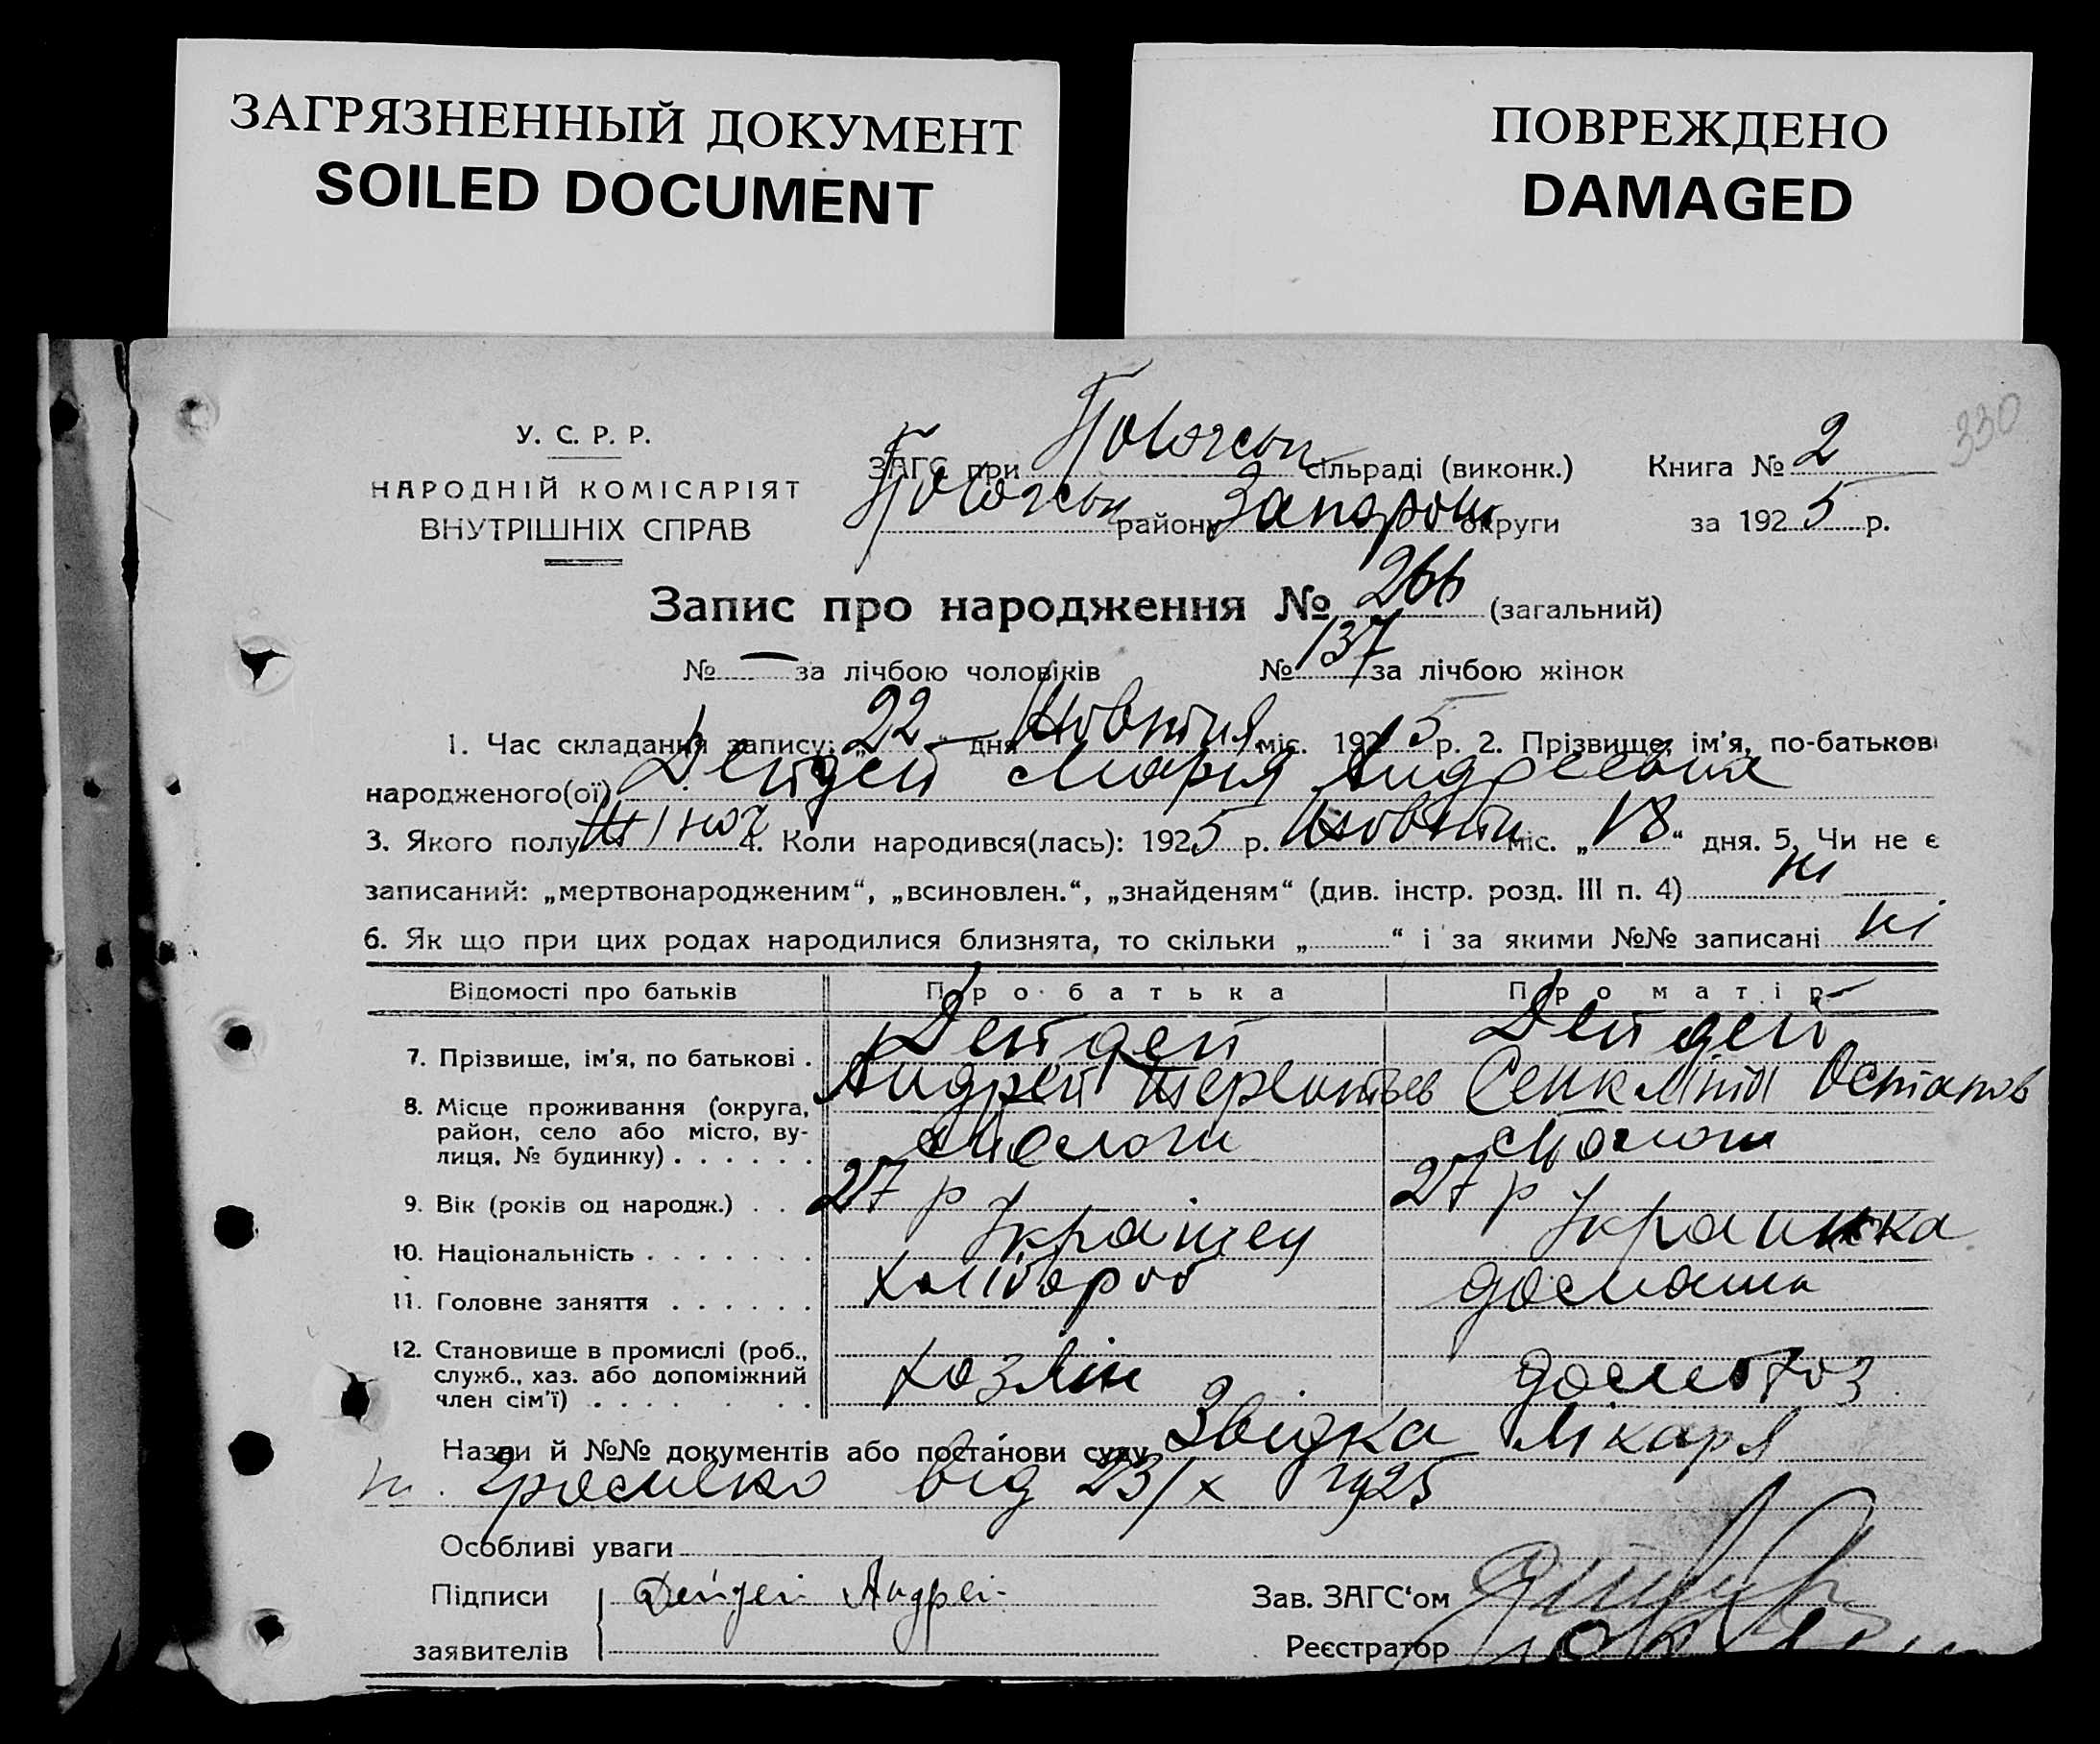 ЗАГРЯЗНЕННЫЙ ДОКУМЕНТ
SOILED DOCUMENT
ПОВРЕЖДЕНО
DAMAGED
330
У. С. Р. Р.
НАРОДНІЙ КОМІСАРІЯТ
ВНУТРІШНІХ СПРАВ
ЗАГС при сільраді (виконк.)
району Запорож округи
Книга № 2
за 1925 р.
Запис про народження № 266 (загальний)
№ — за лічбою чоловіків № 137 за лічбою жінок
1. Час складання запису: „22“ дня Жовтня міс. 1925 р. 2. Прізвище, ім'я, по-батькові
народженого(ої) Дейдей Мария Андреевна
3. Якого полу жіноч 4. Коли народився(лась): 1925 р. Жовтня міс. „18“ дня. 5. Чи не є
записаний: „мертвонародженим“, „всиновлен.“, „знайденям“ (див. інстр. розд. III п. 4) ні
6. Як що при цих родах народилися близнята, то скільки „ “ і за якими №№ записані ні
Відомості про батьків Про батька Про матір
7. Прізвище, ім'я, по батькові . Дейдей Дейдей
Андрей Терентьев Остапов
8. Місце проживання (округа,
район, село або місто, ву-
лиця, № будинку) . . . . . .
9. Вік (років од народж.) . . . 27 р 27 р
10. Національність . . . . . . . Українец Украинка
11. Головне заняття . . . . . . хлібороб домашн
12. Становище в промислі (роб.,
служб., хаз. або допоміжний
член сім'ї) . . . . . . хозяін домохоз
Назви й №№ документів або постанови суду Звідка лікаря
від 23/X 1925
Особливі уваги
Підписи Дейдей Андрей
заявителів
Зав. ЗАГС'ом
Реєстратор